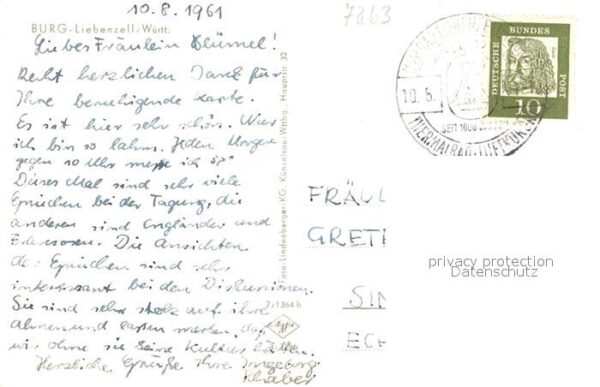 10.8.1961
7263
BURG-Liebenzell/Württ.
Liebes Fräulein Blümel!
Recht herzlichen Dank für
Ihre beruhigende Karte.
Es ist hier sehr schön. Nur
ich bin so lahm. Jeden Morgen
gegen 10 Uhr messe ich
Dieses Mal sind sehr viele
Griechen bei der Tagung, die
anderen sind Engländer und
Die Ansichten
der Griechen sind sehr
interessant bei den Diskussionen.
Sie sind sehr stolz auf ihre
Ahnen und lassen merken, daß
wir ohne sie keine Kultur hätten.
Herzliche Grüße Ihre Ingeborg
Foto-Lindenberger-KG Künzelsau/Wttbg. Hauptstr. 32
DEUTSCHE BUNDES POST
10
10.8.
SEIT 1600
THERMALBAD-LUFTKURORT
FRÄUL
GRETE
SIN
ECH
privacy protection
Datenschutz
Agfa